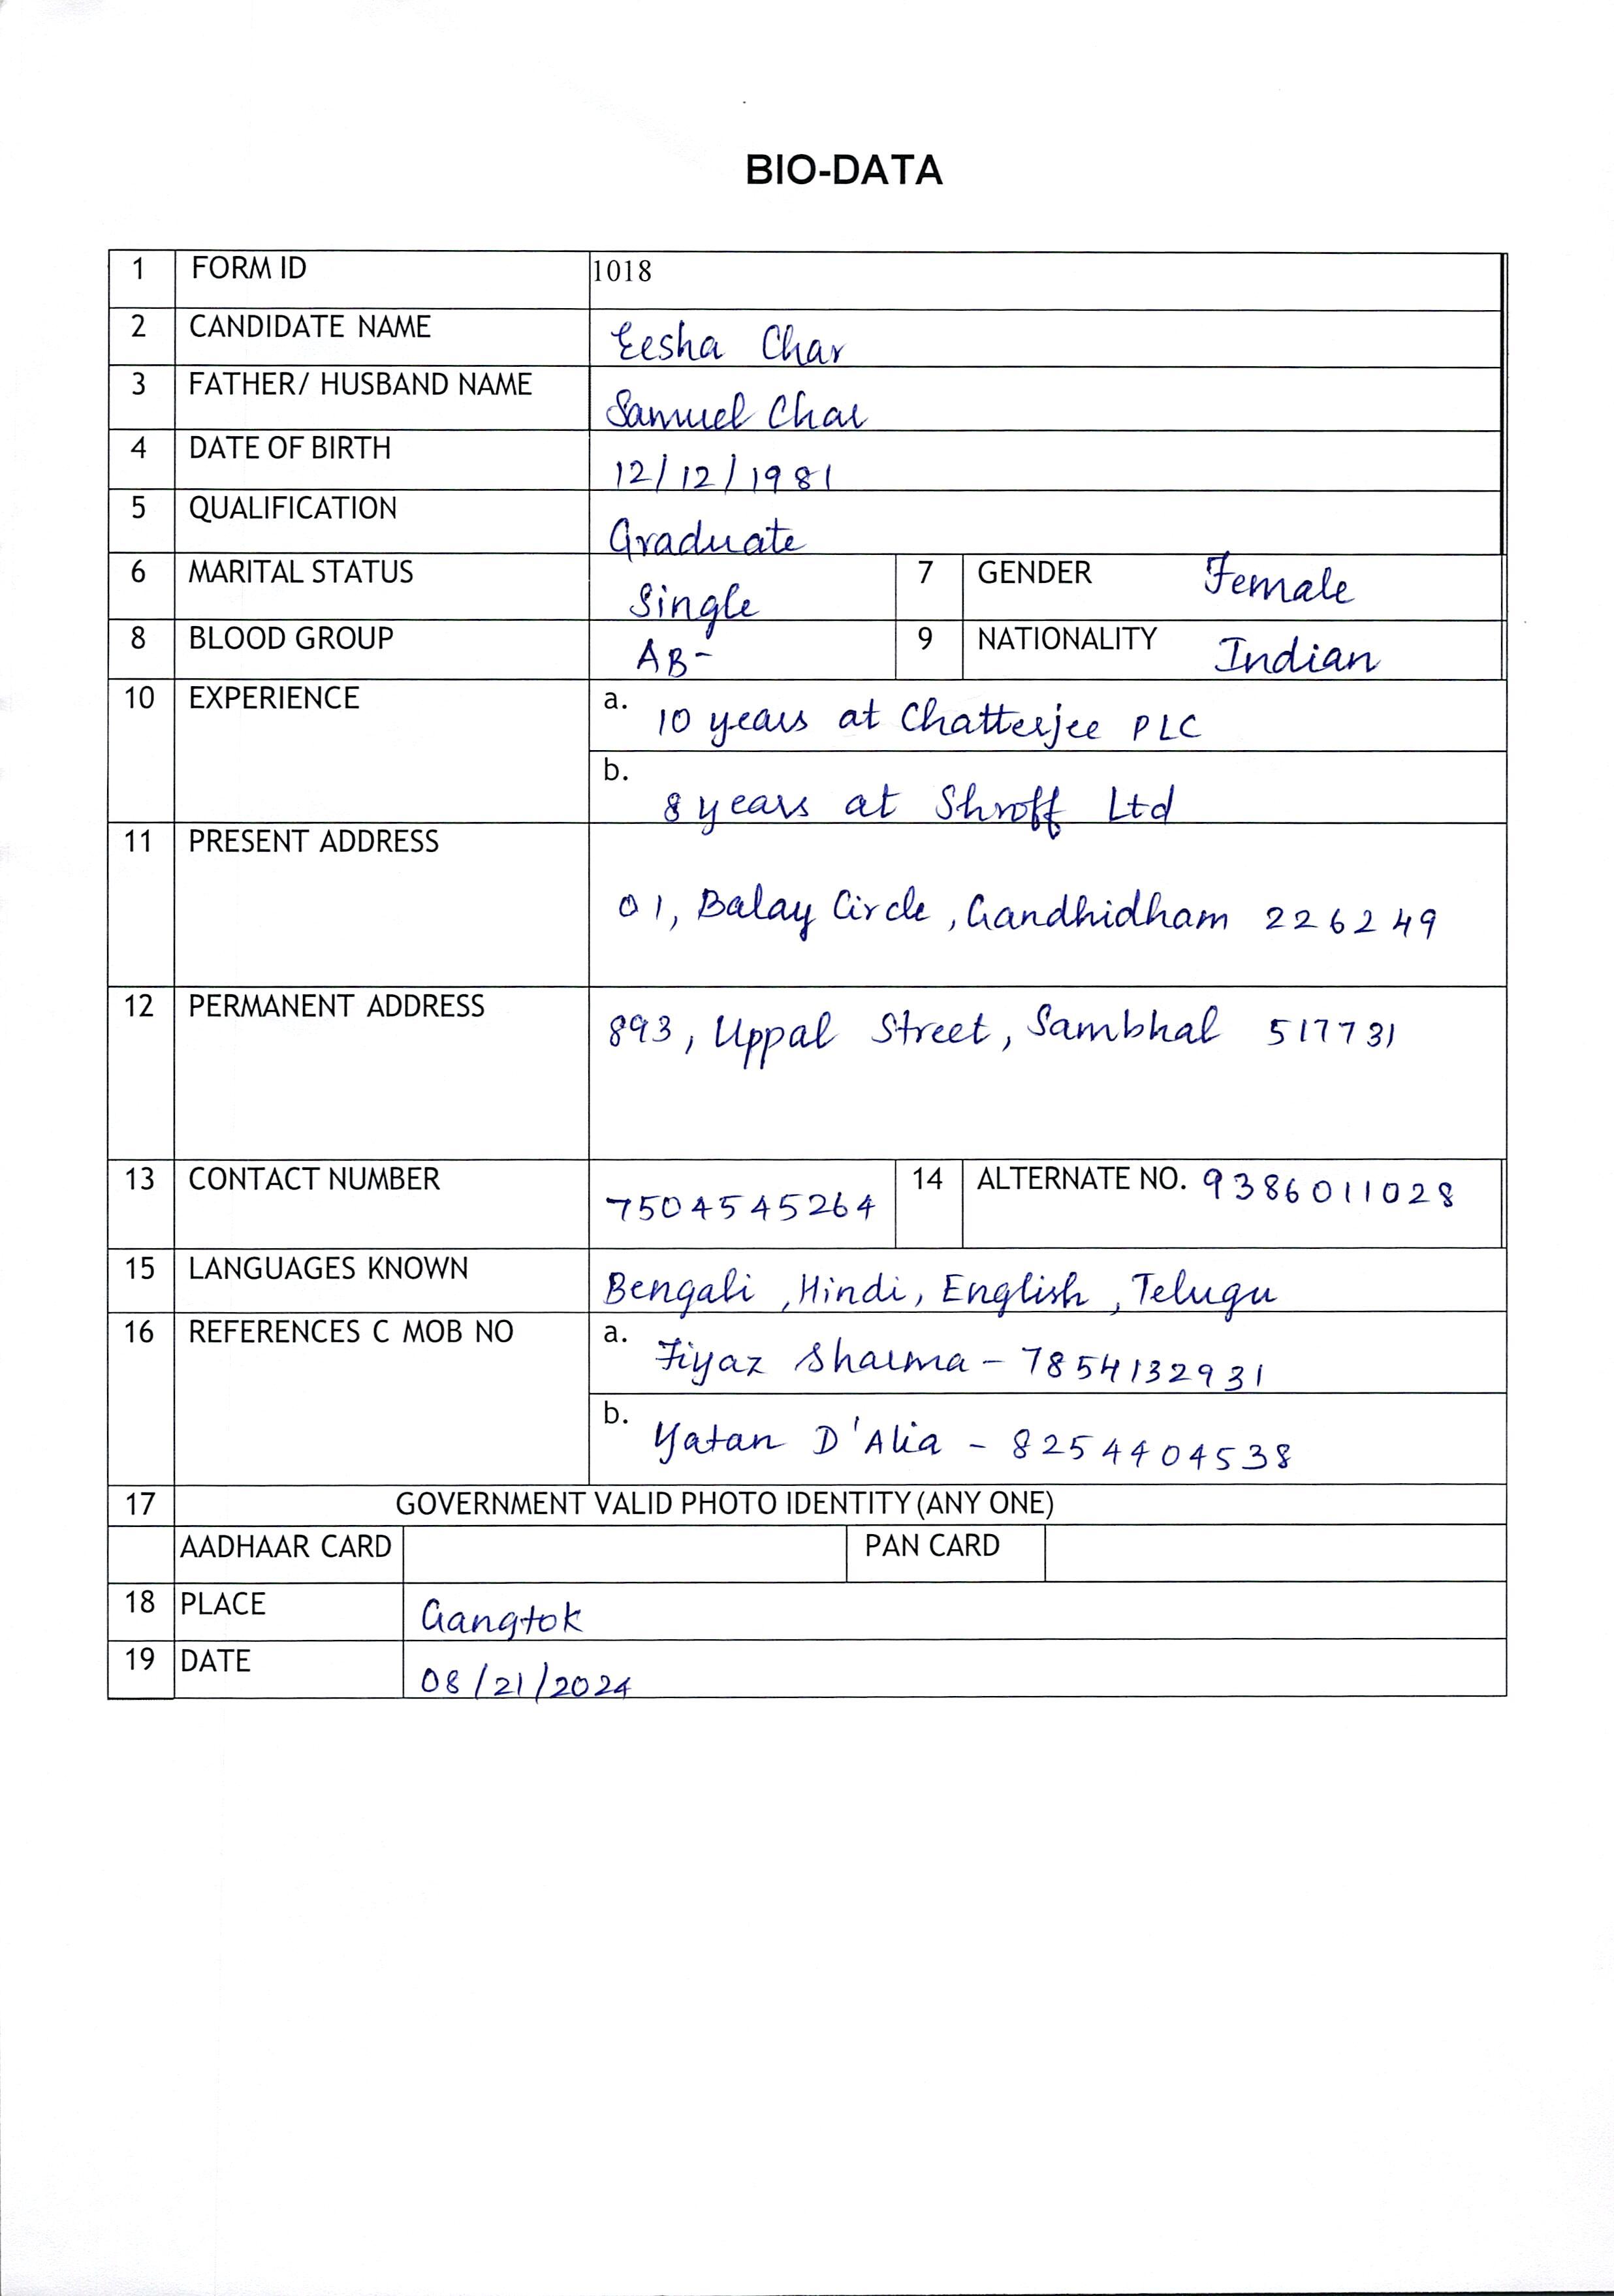 BIO-DATA
1 FORM ID 1018
2 CANDIDATE NAME Eesha Char
3 FATHER/ HUSBAND NAME Samuel Char
4 DATE OF BIRTH 12/12/1981
5 QUALIFICATION Graduate
6 MARITAL STATUS Single 7 GENDER Female
8 BLOOD GROUP AB- 9 NATIONALITY Indian
10 EXPERIENCE a. 10 years at Chatterjee PLC
b. 8 years at Shroff Ltd
11 PRESENT ADDRESS 01, Balay Circle, Gandhidham 226249
12 PERMANENT ADDRESS 893, Uppal Street, Sambhal 517731
13 CONTACT NUMBER 7504545264 14 ALTERNATE NO. 9386011028
15 LANGUAGES KNOWN Bengali, Hindi, English, Telugu
16 REFERENCES C MOB NO a. Fiyaz Sharma - 7854132931
b. Yatan D'Alia - 8254404538
17 GOVERNMENT VALID PHOTO IDENTITY (ANY ONE)
AADHAAR CARD PAN CARD
18 PLACE Gangtok
19 DATE 08/21/2024